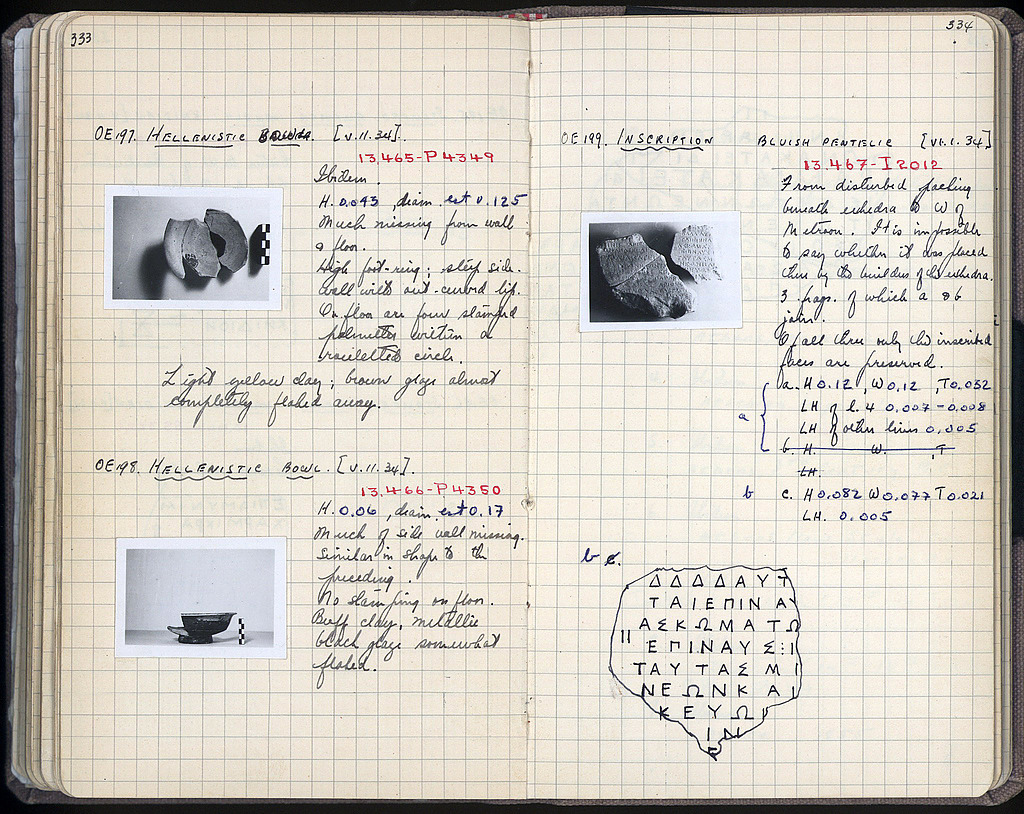 333
OE197. HELLENISTIC BOWL. [V.11.34].
13.465-P4349
Ibidem.
H. 0.043, diam. est 0.125
Much missing from wall
& floor.
High foot-ring; steep side.
Wall with out-curved lip.
On floor are four stamped
palmettes within a
rouletted circle.
Light yellow clay; brown glaze almost
completely flaked away.
OE198. HELLENISTIC BOWL. [V.11.34].
13.466-P4350
H. 0.06, diam. est 0.17
Much of side wall missing.
Similar in shape to the
preceding.
No stamping on floor.
Buff clay, metallic
black glaze somewhat
flaked.
334
OE199. INSCRIPTION BLUISH PENTELIC [VI.1.34]
13.467-I2012
From disturbed packing
beneath exhedra to W of
Metroon. It is impossible
to say whether it was placed
there by the builders of the exhedra.
3 frags. of which a & b
join.
Of all three only the inscribed
faces are preserved.
a. H 0.12, W 0.12, T 0.052
LH of l. 4 0.007-0.008
LH of other lines 0.005
a
b. H. W. T
LH.
b c. H 0.082 W 0.077 T 0.021
LH. 0.005
b c.
ΔΔΔΔΑΥΤ
ΤΑΙΕΠΙΝΑ
ΑΣΚΩΜΑΤΩ
ΙΙ ΕΠΙΝΑΥΣ:Ι
ΤΑΥΤΑΣΜΙ
ΝΕΩΝΚΑΙ
ΚΕΥΩΙ
ΙΝ
Ε